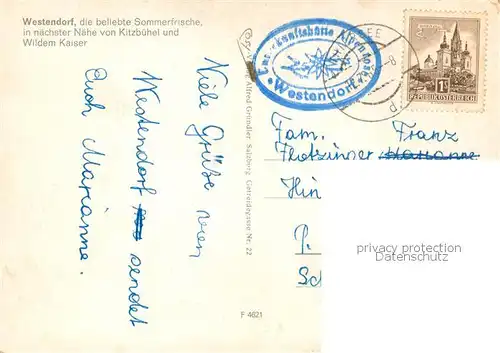 Westendorf, die beliebte Sommerfrische,
in nächster Nähe von Kitzbühel und
Wildem Kaiser
Viele Grüße
Westendorf sendet
Euch Marianne.
Alfred Gründler, Salzburg, Getreidegasse Nr. 22
F 4621
Westendorf
REPUBLIK ÖSTERREICH
Fam. Franz
Marianne
Hin
P.
Sch
privacy protection
Datenschutz